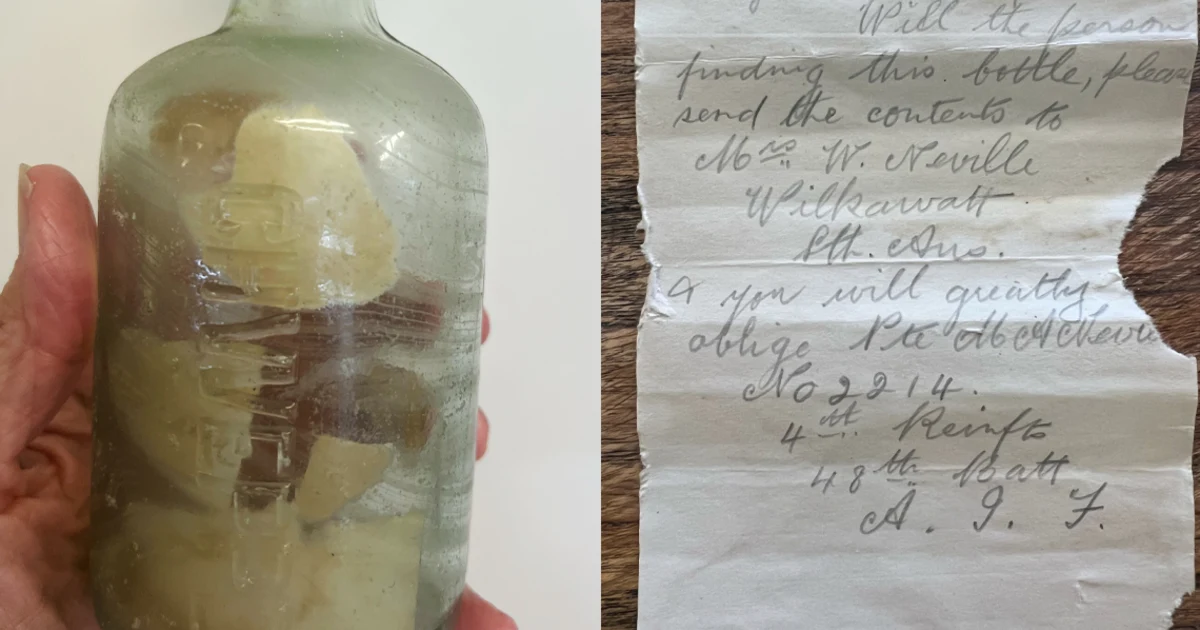 Will the person
finding this bottle, pleas
send the contents to
Mrs W. Neville
Wilkawatt
Sth. Aus.
& you will greatly
oblige Pte
No 2214.
4th Reinfts
48th Batt
A. I. F.